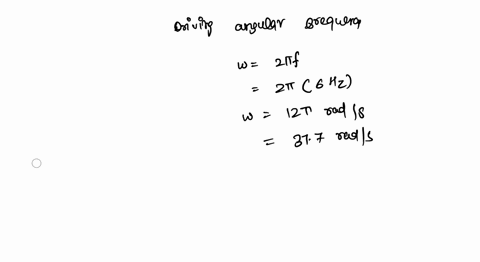 Driving angular frequency
ω = 2πf
= 2π (6 Hz)
ω = 12π rad/s
= 37.7 rad/s